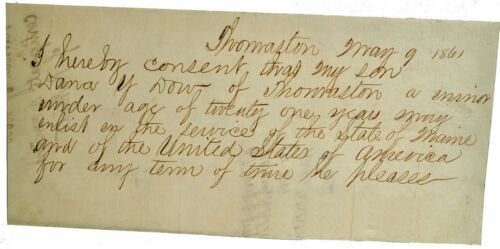 Thomaston May 9 1861
I hereby consent that my son
Dana Y Dow of Thomaston a minor
under age of twenty one years may
enlist in the service of the State of Maine
and of the United States of America
for any term of time he pleases